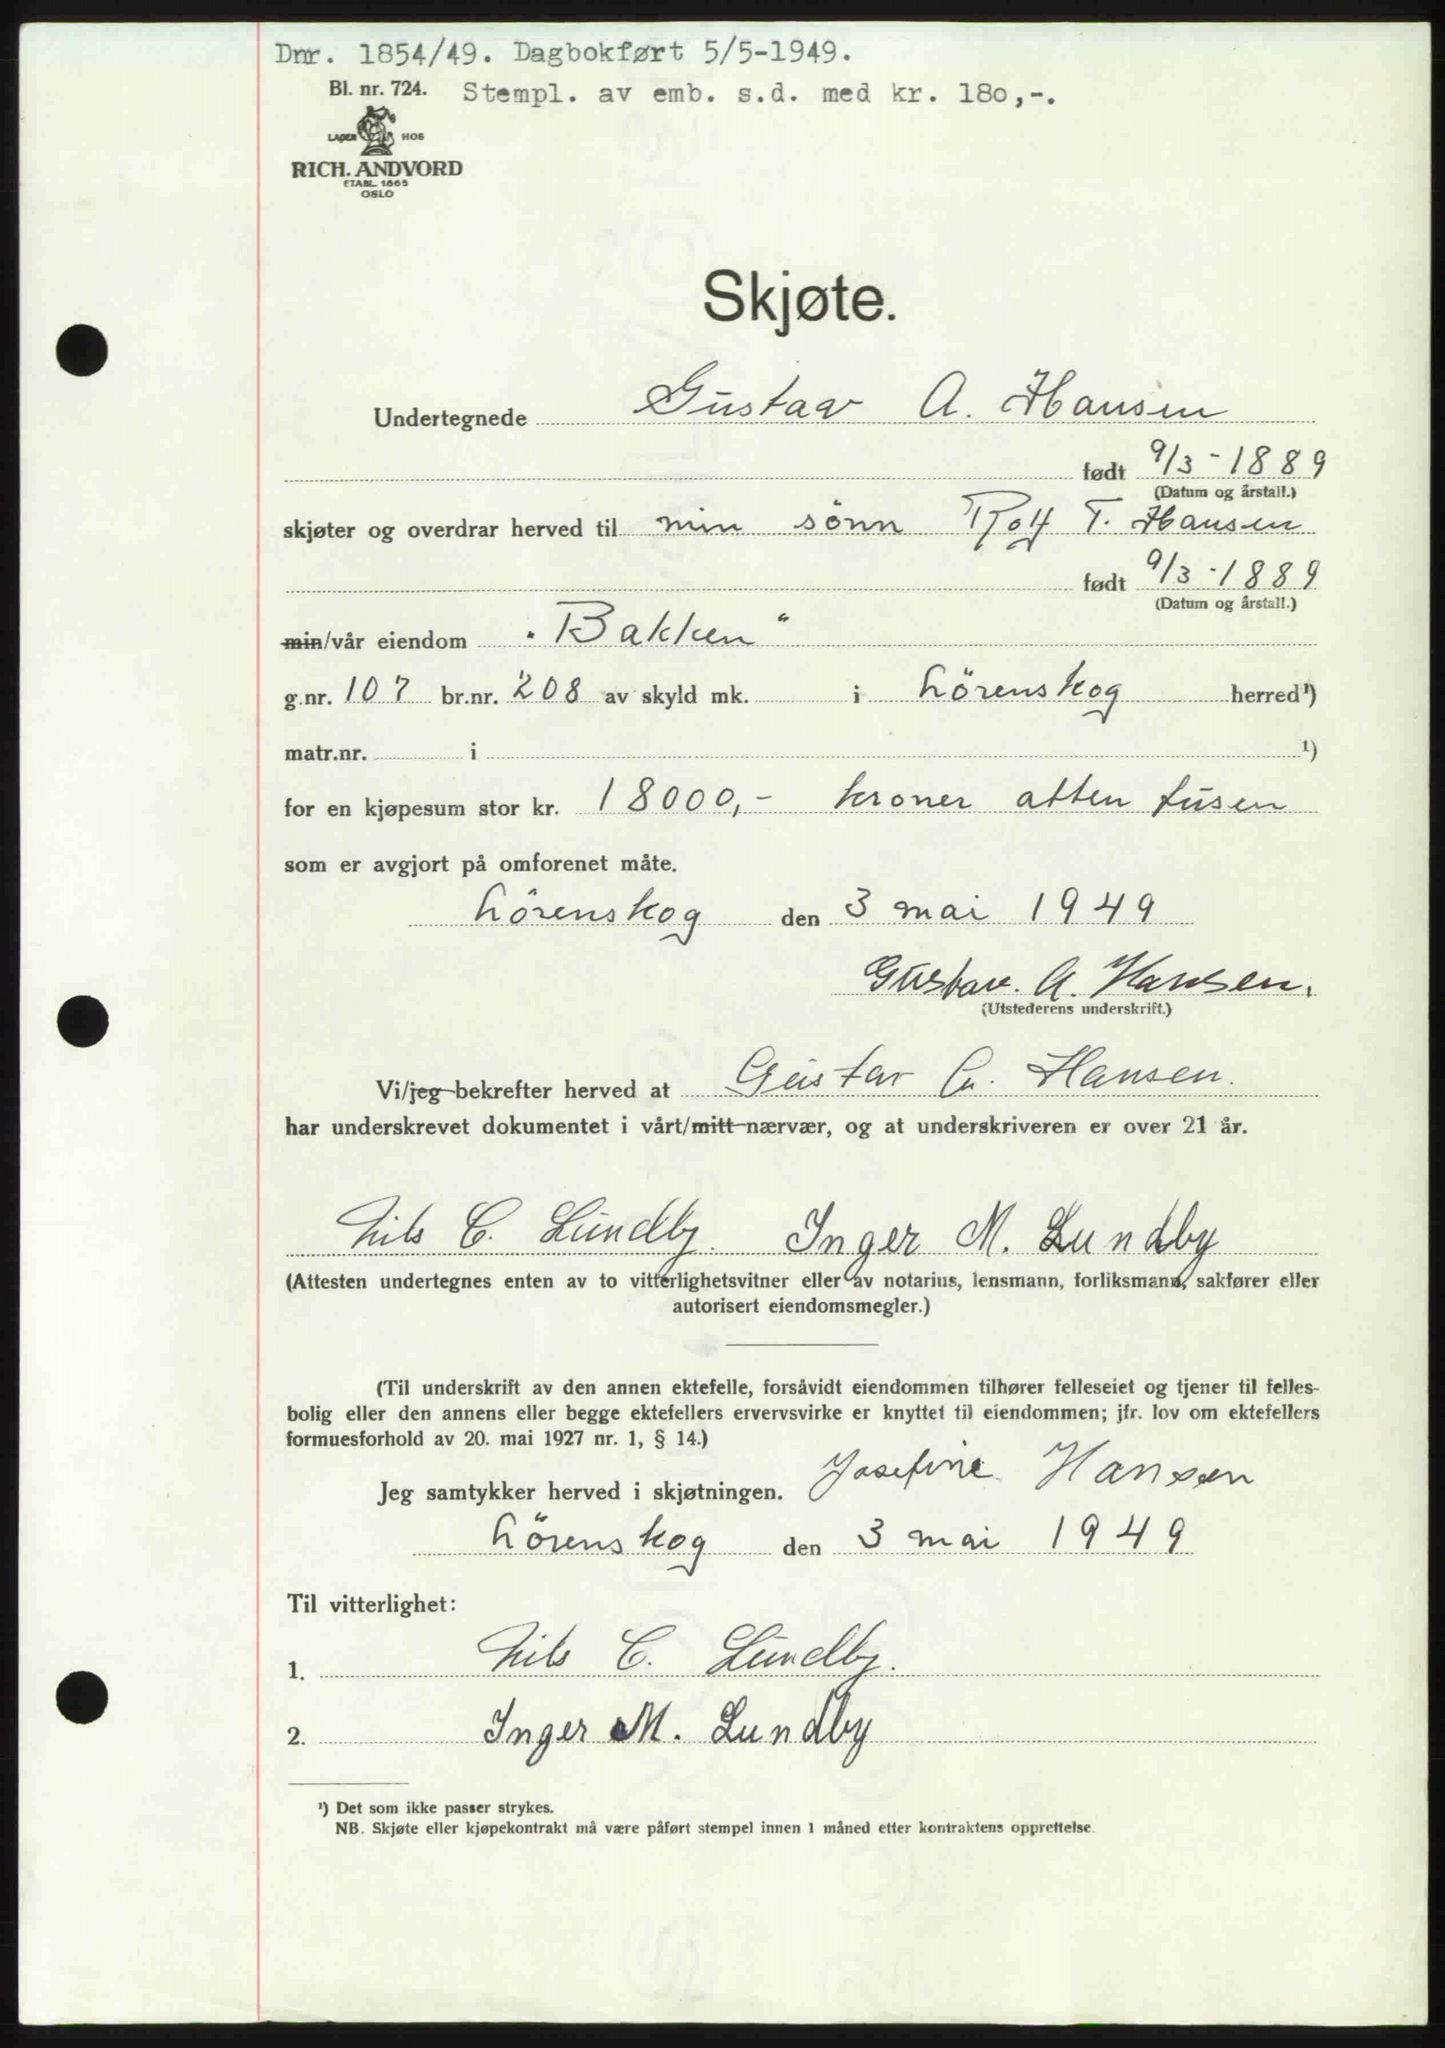 Dnr. 1854/49. Dagbokført 5/5-1949.
Bl. nr. 724. Stempl. av emb. s.d. med kr. 180,-.
LAGER HOS
RICH. ANDVORD
ETABL. 1865
OSLO
Skjøte.
Undertegnede Gustav A. Hansen
født 9/3-1889
(Datum og årstall.)
skjøter og overdrar herved til min sönn Rolf T. Hansen
født 9/3-1889
(Datum og årstall.)
min/vår eiendom "Bakken"
g.nr. 107 br.nr. 208 av skyld mk. i Lörenskog herred¹)
matr.nr. i ¹)
for en kjøpesum stor kr. 18000,- kroner atten tusen
som er avgjort på omforenet måte.
Lörenskog den 3 mai 1949
Gustav. A. Hansen.
(Utstederens underskrift.)
Vi/jeg bekrefter herved at Gustav A. Hansen.
har underskrevet dokumentet i vårt/mitt nærvær, og at underskriveren er over 21 år.
Nils C. Lundby. Inger M. Lundby
(Attesten undertegnes enten av to vitterlighetsvitner eller av notarius, lensmann, forliksmann, sakfører eller
autorisert eiendomsmegler.)
(Til underskrift av den annen ektefelle, forsåvidt eiendommen tilhører felleseiet og tjener til felles-
bolig eller den annens eller begge ektefellers ervervsvirke er knyttet til eiendommen; jfr. lov om ektefellers
formuesforhold av 20. mai 1927 nr. 1, § 14.)
Jeg samtykker herved i skjøtningen. Josefine Hansen
Lörenskog den 3 mai 1949
Til vitterlighet:
1. Nils C. Lundby.
2. Inger M. Lundby
¹) Det som ikke passer strykes.
NB. Skjøte eller kjøpekontrakt må være påført stempel innen 1 måned etter kontraktens opprettelse.